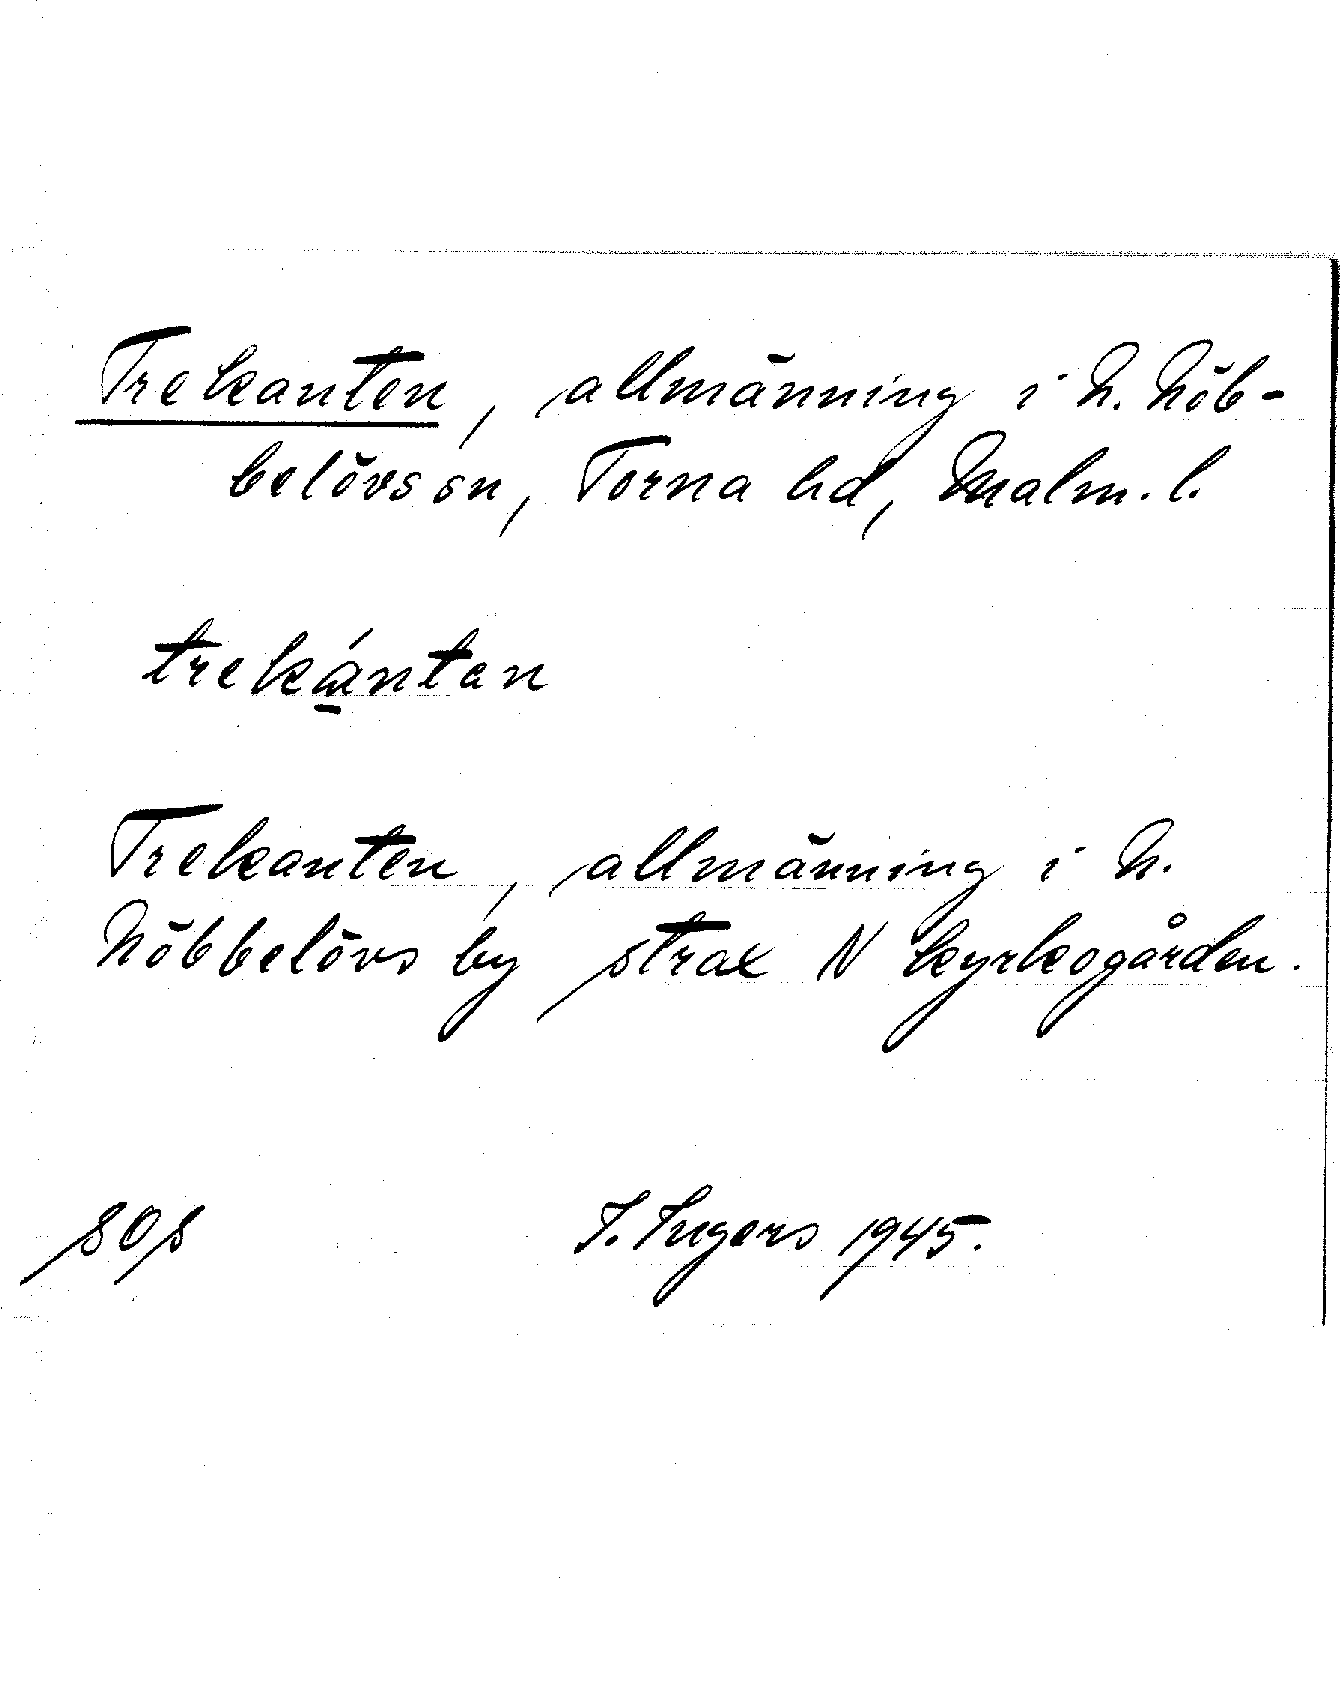 Trekanten, allmänning i N. Nöb-
belövs sn, Torna hd, Malm. l.
trekántan
Trekanten, allmänning i N.
Nöbbelövs by strax N kyrkogården.
SOS I. Ingers 1945.